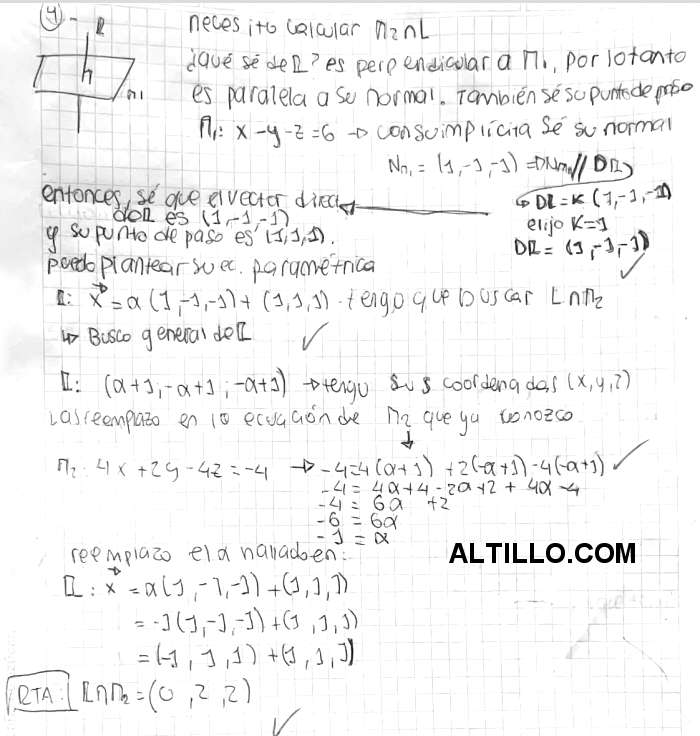 4)-
L
π1
necesito calcular π2∩L
¿qué sé de L? es perpendicular a π1, por lo tanto
es paralela a su normal. También sé su punto de paso
π1: x-y-z=6 → con su implícita sé su normal
Nπ1 = (1,-1,-1) ⇒ Nπ1 // DL
↳ DL=K(1,-1,-1)
elijo K=1
DL = (1,-1,-1)
entonces, sé que el vector direct
do L es (1,-1,-1)
y su punto de paso es (1,1,1).
puedo plantear su ec. paramétrica
L: x = α(1,-1,-1)+(1,1,1). tengo que buscar L∩π2
↳ Busco general de L
L: (α+1,-α+1,-α+1) → tengo sus coordenadas (x,y,z)
Las reemplazo en la ecuación de π2 que ya conozco
π2: 4x+2y-4z=-4 → -4=4(α+1)+2(-α+1)-4(-α+1)
-4= 4α+4-2α+2+4α-4
-4= 6α +2
-6=6α
-1=α
reemplazo el α hallado en:
L: x = α(1,-1,-1)+(1,1,1)
= -1(1,-1,-1)+(1,1,1)
= (-1,1,1)+(1,1,1)
RTA: L∩π2=(0,2,2)
ALTILLO.COM